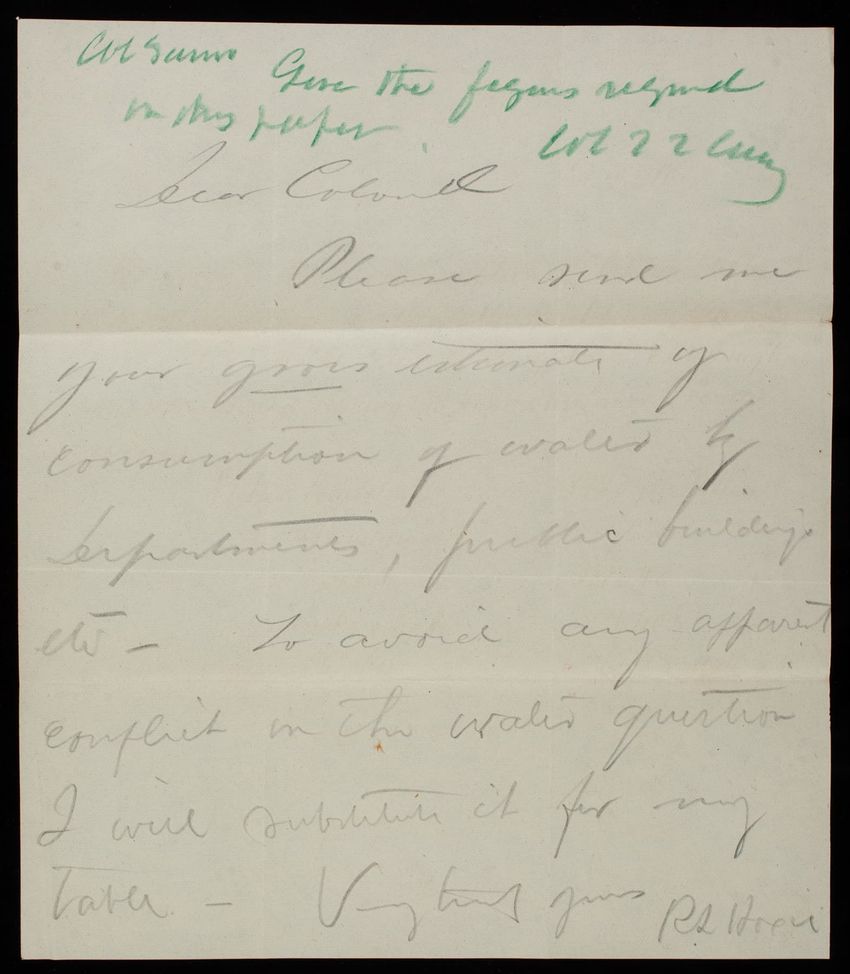 Give the figures required
on this paper
Dear Colonel
Please send me
your gross estimate of
consumption of water by
Departments, public buildings
etc - To avoid any apparent
conflict in the water question
I will substitute it for my
table - Very truly yours
R L Hoxie